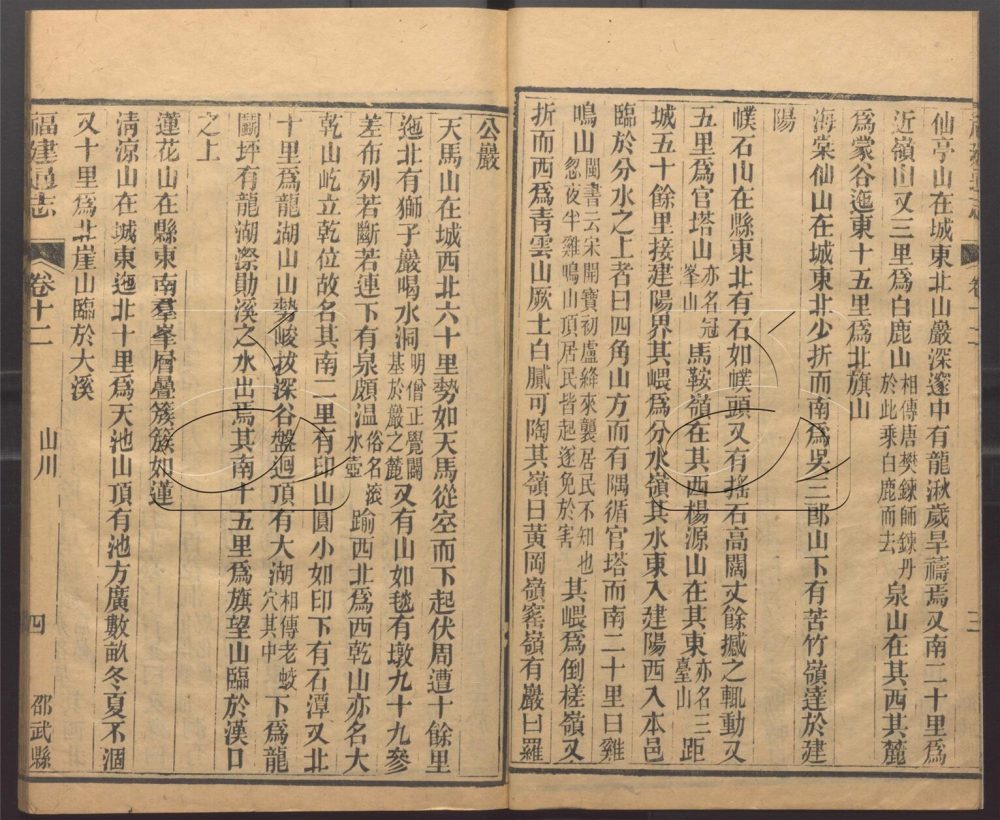 仙亭山在城東北山巖深邃中有龍湫歲旱禱焉又南二十里爲
近嶺山又三里爲白鹿山相傳唐樊鍊師鍊丹於此乘白鹿而去泉山在其西其麓
爲蒙谷迤東十五里爲北旗山
海棠仙山在城東北少折而南爲吳三郎山下有苦竹嶺達於建
陽
幞石山在縣東北有石如幞頭又有搖石高闊丈餘撼之輒動又
五里爲官塔山亦名冠峯山馬鞍嶺在其西楊源山在其東亦名三臺山距
城五十餘里接建陽界其嵔爲分水嶺其水東入建陽西入本邑
臨於分水之上者曰四角山方而有隅循官塔而南二十里曰雞
鳴山閩書云宋開寶初盧絳來襲居民不知也忽夜半雞鳴山頂居民皆起逐免於害其嵔爲倒槎嶺又
折而西爲靑雲山厥土白膩可陶其嶺曰黃岡嶺窰嶺有巖曰羅
公巖
天馬山在城西北六十里勢如天馬從空而下起伏周遭十餘里
迤北有獅子巖喝水洞明僧正覺闢基於巖之麓又有山如毬有墩九十九參
差布列若斷若連下有泉頗温俗名滚水壺踰西北爲西乾山亦名大
乾山屹立乾位故名其南二里有印山圓小如印下有石潭又北
十里爲龍湖山山勢峻拔深谷盤迴頂有大湖相傳老蛟穴其中下爲龍
鬭坪有龍湖漈勛溪之水出焉其南十五里爲旗望山臨於漢口
之上
蓮花山在縣東南羣峯層疊簇簇如蓮
淸凉山在城東迤北十里爲天池山頂有池方廣數畝冬夏不涸
又十里爲北崖山臨於大溪
福建通志
卷十二
山川
四
邵武縣
三